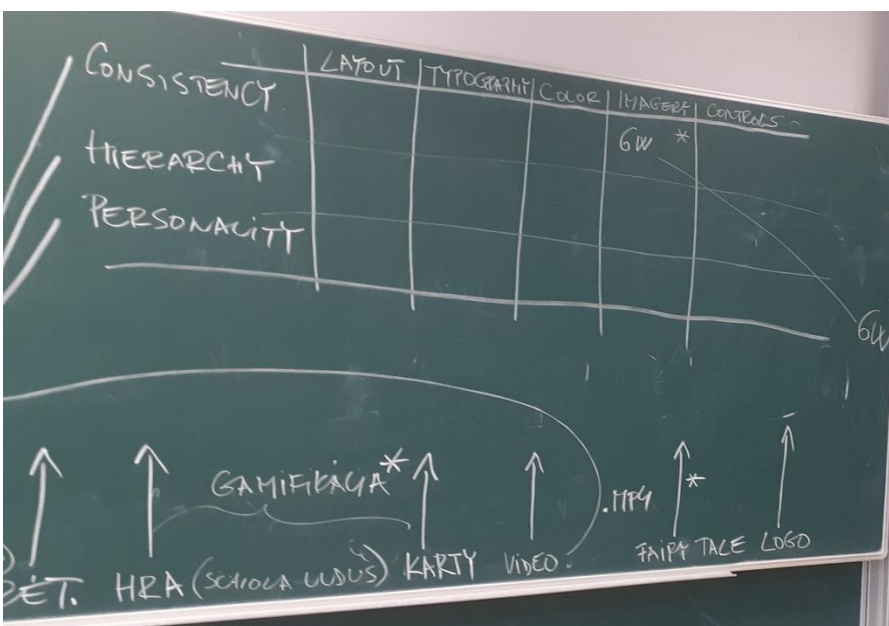 LAYOUT | TYPOGRAPHY | COLOR | IMAGERY | CONTROLS
CONSISTENCY
6W *
HIERARCHY
PERSONALITY
6W
GAMIFIKÁCIA *
.MP4
*
HRA (SCHOLA LUDUS) KARTY VIDEO. FAIRY TALE LOGO